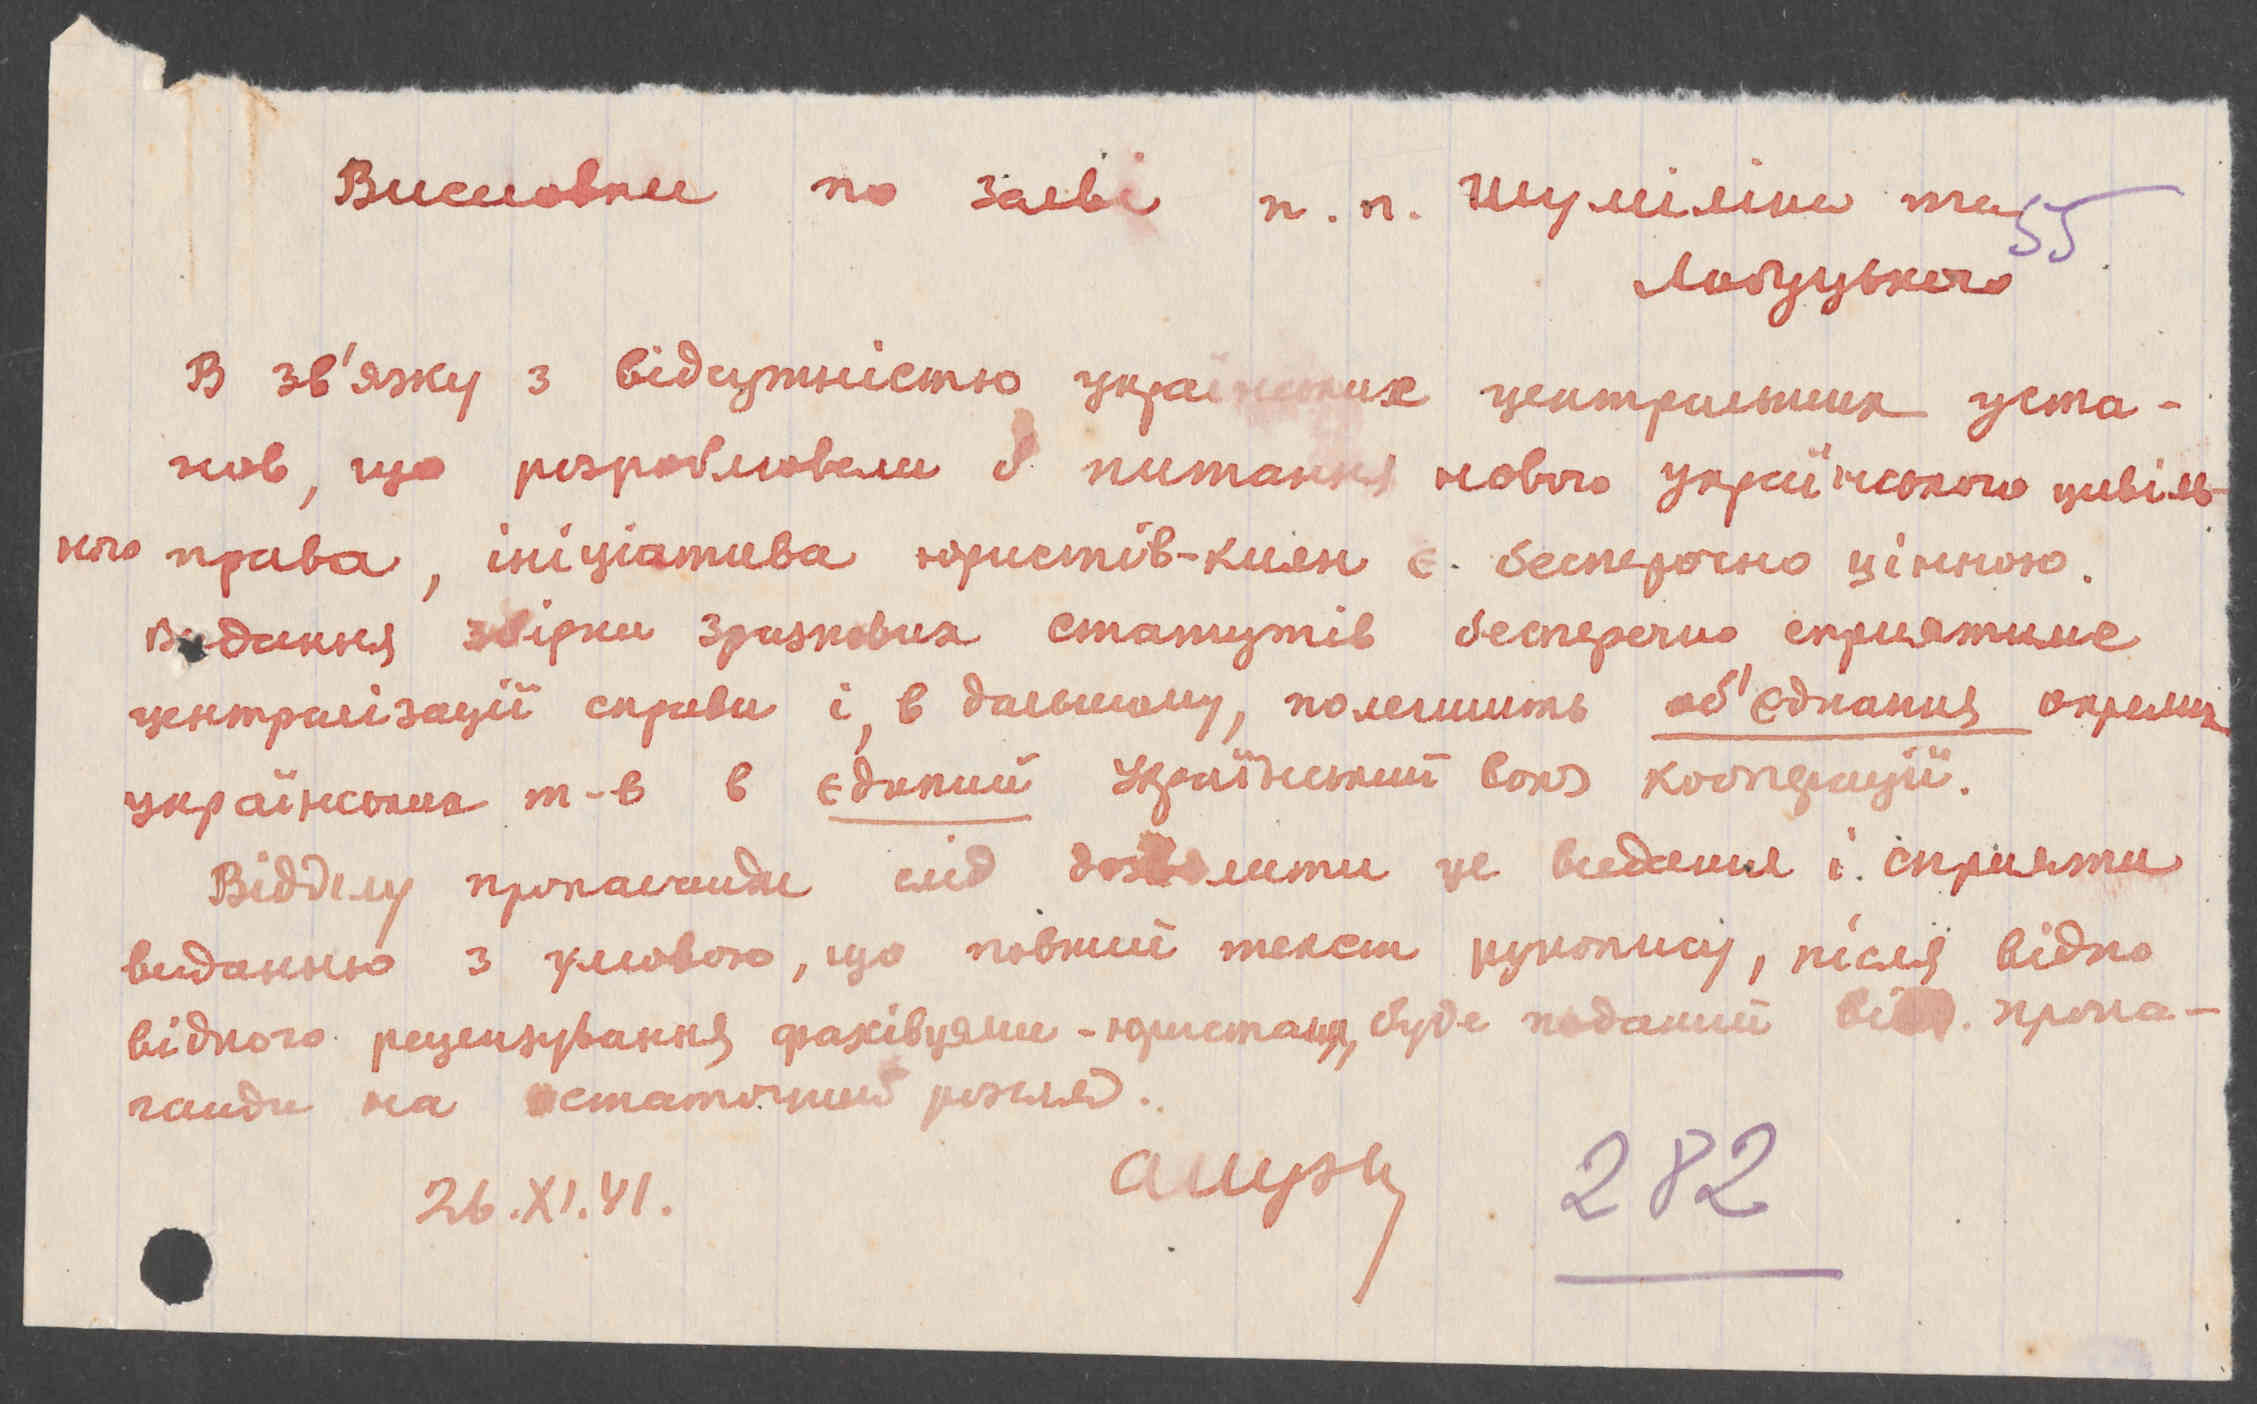 Висновки по заяві п.п. Шуміліна та
55
Лобуцького
В зв'язку з відсутністю українських центральних уста-
нов, що розроблювали б питання нового українського цивіль-
ного права, ініціатива юристів-киян є беспоречно цінною.
Видання збірки зразкових статутів бесперечно сприятиме
централізації справи і, в дальшому, полегшить об'єднання окремих
українських т-в в єдиний Український союз кооперації.
Відділу пропаганди слід дозволити це видання і сприяти
виданню з умовою, що повний текст рукопису, після відпо
відного рецензування фахівцями-юристами, буде поданий від. пропа-
ганди на остаточний розгляд.
26.XI.41.
282